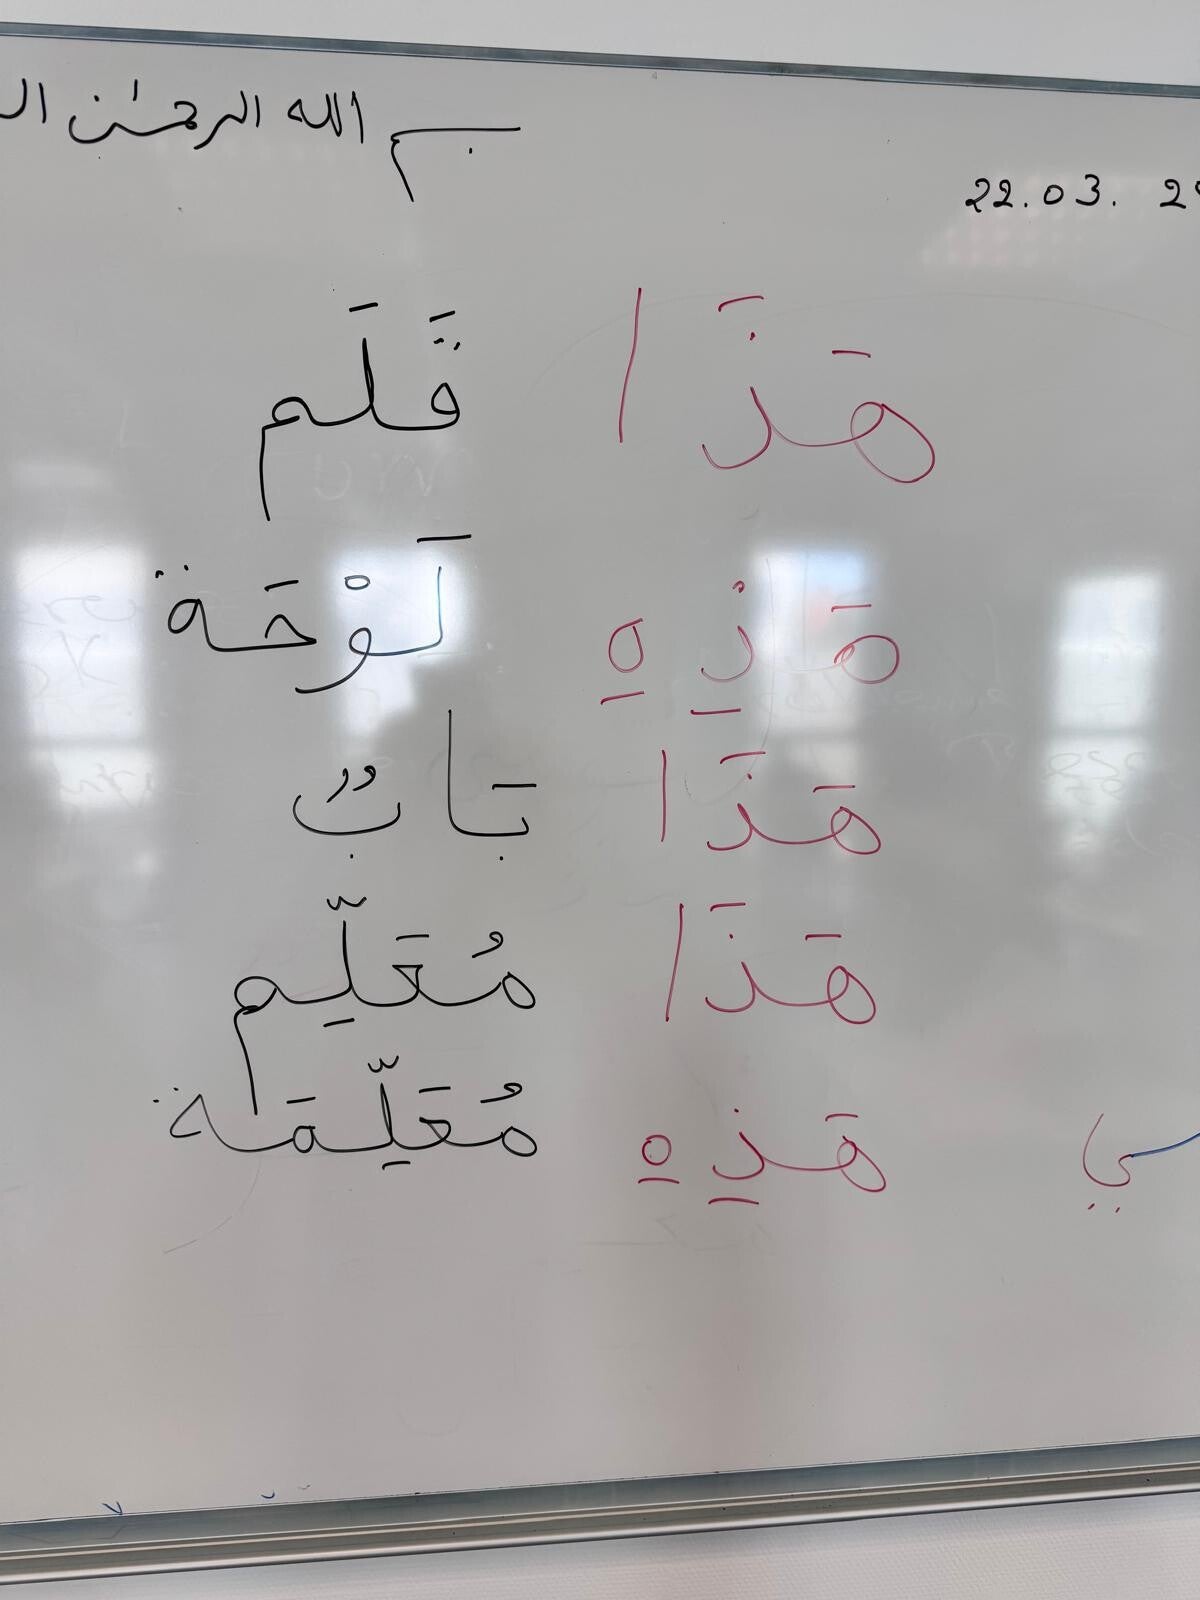 بسم الله الرحمٰن الـ
22.03. 2
هَذَا قَلَم
هَذِهِ لَوْحَة
هَذَا بَابٌ
هَذَا مُعَلِّم
هَذِهِ مُعَلِّمَة